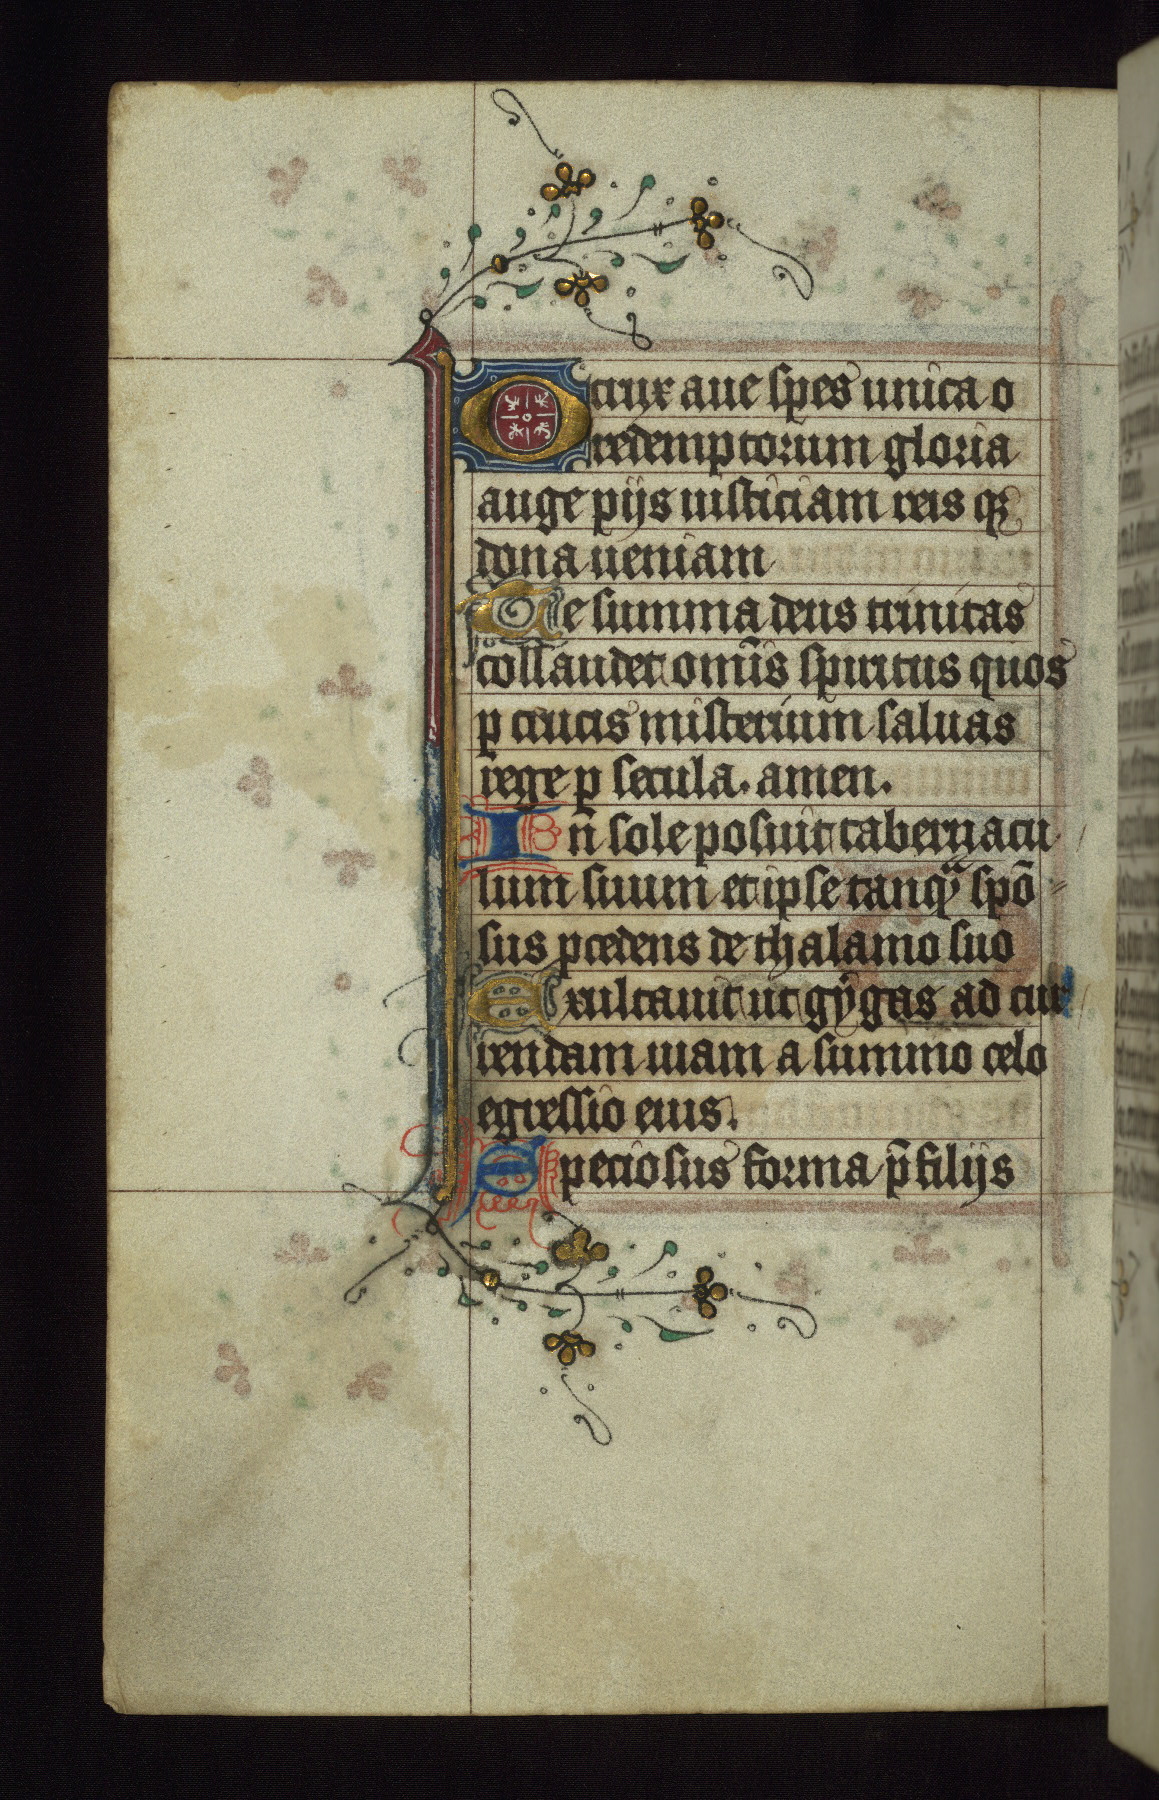 O crux aue spes unica o
redemptorum gloria
auge pijs iusticiam reis qꝫ
dona ueniam
Te summa deus trinitas
collaudet om̅is spiritus quos
ꝑ crucis misterium saluas
rege ꝑ secula. amen.
In sole posuit tabernacu
lum suum et ipse tanqᷓ spō-
sus ꝓcedens de thalamo suo
Exultauit ut gẏgas ad cur
rendam uiam a summo celo
egressio eius.
Speciosus forma p̄ filijs